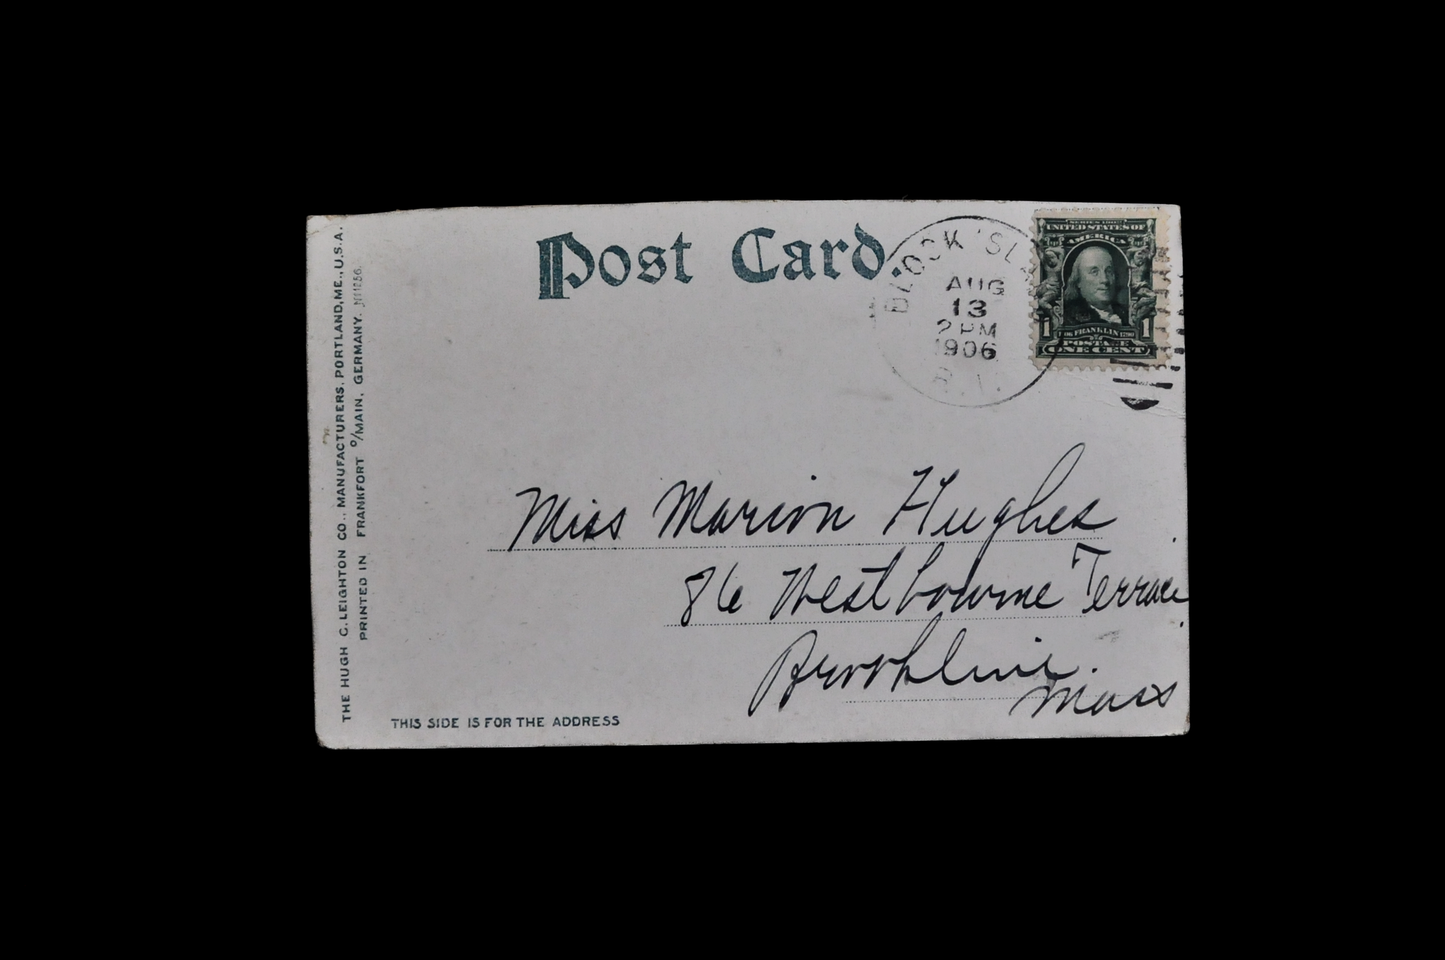 Post Card.
BLOCK ISL
AUG
13
2 PM
1906
R.I.
SERIES 1902
UNITED STATES OF
AMERICA
1706 FRANKLIN 1790
1 1
POSTAGE
ONE CENT
Miss Marion Hughes
86 Westbourne Terrace
Brookline.
Mass
THIS SIDE IS FOR THE ADDRESS
THE HUGH C. LEIGHTON CO., MANUFACTURERS, PORTLAND, ME., U.S.A.
PRINTED IN FRANKFORT o/MAIN, GERMANY.